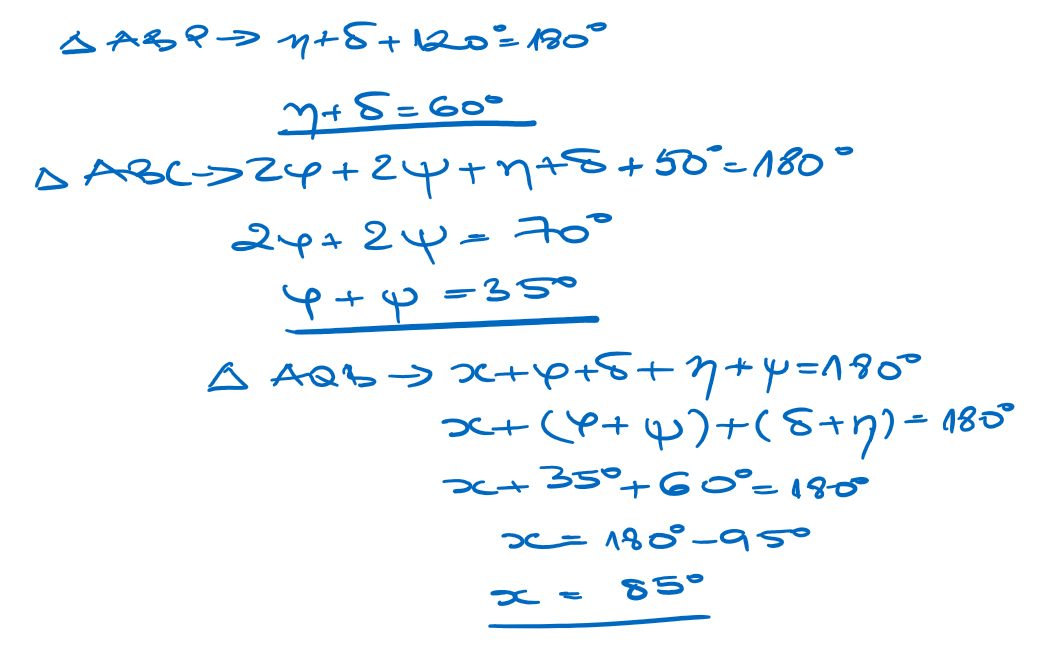 △ ABP → η+δ+120°=180°
η+δ=60°
△ ABC→2φ+2ψ+η+δ+50°=180°
2φ+2ψ=70°
φ+ψ=35°
△ AQB → x+φ+δ+η+ψ=180°
x+(φ+ψ)+(δ+η)=180°
x+35°+60°=180°
x=180°-95°
x=85°